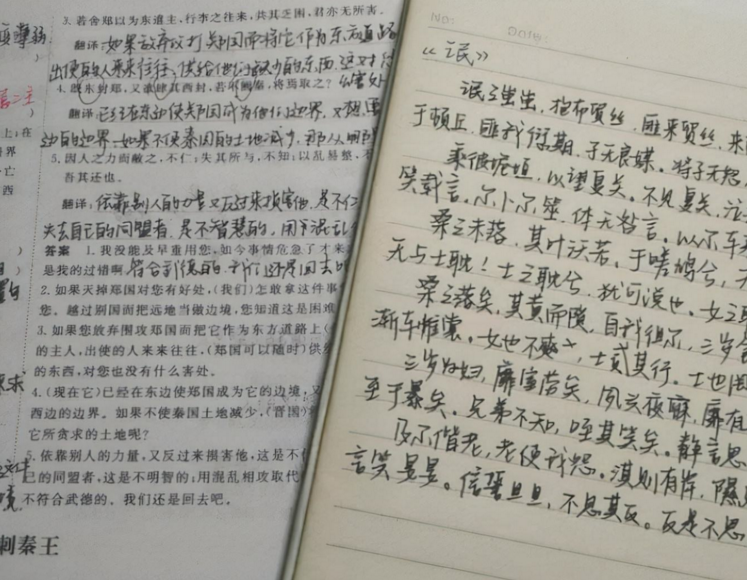 3. 若舍郑以为东道主，行李之往来，共其乏困，君亦无所害。
翻译：如果放弃攻打郑国而将它作为东方道路
出使的人来来往往，供给他们缺少的东西，这对
4. 既东封郑，又欲肆其西封，若不阙秦，将焉取之？
翻译：它已在东边使郑国成为他的边界，又想
边的边界，如果不使秦国的土地减少，那从哪
5. 因人之力而敝之，不仁；失其所与，不知；以乱易整，不
吾其还也。
翻译：依靠别人的力量又反过来损害他，是不仁
失去自己的同盟者，是不智慧的，用混乱
答案 1. 我没能及早重用您，如今事情危急了才来
是我的过错啊
2. 如果灭掉郑国对您有好处，（我们）怎敢拿这件事
您。越过别国而把远地当做边境，您知道这是困难
3. 如果您放弃围攻郑国而把它作为东方道路上（
的主人，出使的人来来往往，（郑国可以随时）供
的东西，对您也没有什么害处。
4. （现在它）已经在东边使郑国成为它的边境，又
西边的边界。如果不使秦国土地减少，（晋国）
它所贪求的土地呢？
5. 依靠别人的力量，又反过来损害他，这是不
己的同盟者，这是不明智的；用混乱相攻取代
不符合武德的。我们还是回去吧。
刺秦王
No: Date:
《氓》
氓之蚩蚩，抱布贸丝，匪来贸丝，来
于顿丘，匪我愆期，子无良媒。将子无怒，
乘彼垝垣，以望复关。不见复关，泣
笑载言。尔卜尔筮，体无咎言。以尔车
桑之未落，其叶沃若。于嗟鸠兮，无
无与士耽！士之耽兮，犹可说也。女之
桑之落矣，其黄而陨，自我徂尔，三岁
渐车帷裳。女也不爽，士贰其行。士也罔
三岁为妇，靡室劳矣，夙兴夜寐，靡有
至于暴矣。兄弟不知，咥其笑矣。静言思
及尔偕老，老使我怨。淇则有岸，隰
言笑晏晏。信誓旦旦，不思其反。反是不思